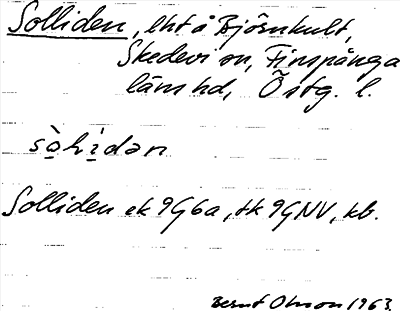 Solliden, lht å Björnkult,
Skedevi sn, Finspånga
läns hd, Östg. l.
sò̩lìdən
Solliden ek 9G6a, tk 9GNV, kb.
Bernt Olsson 1963.